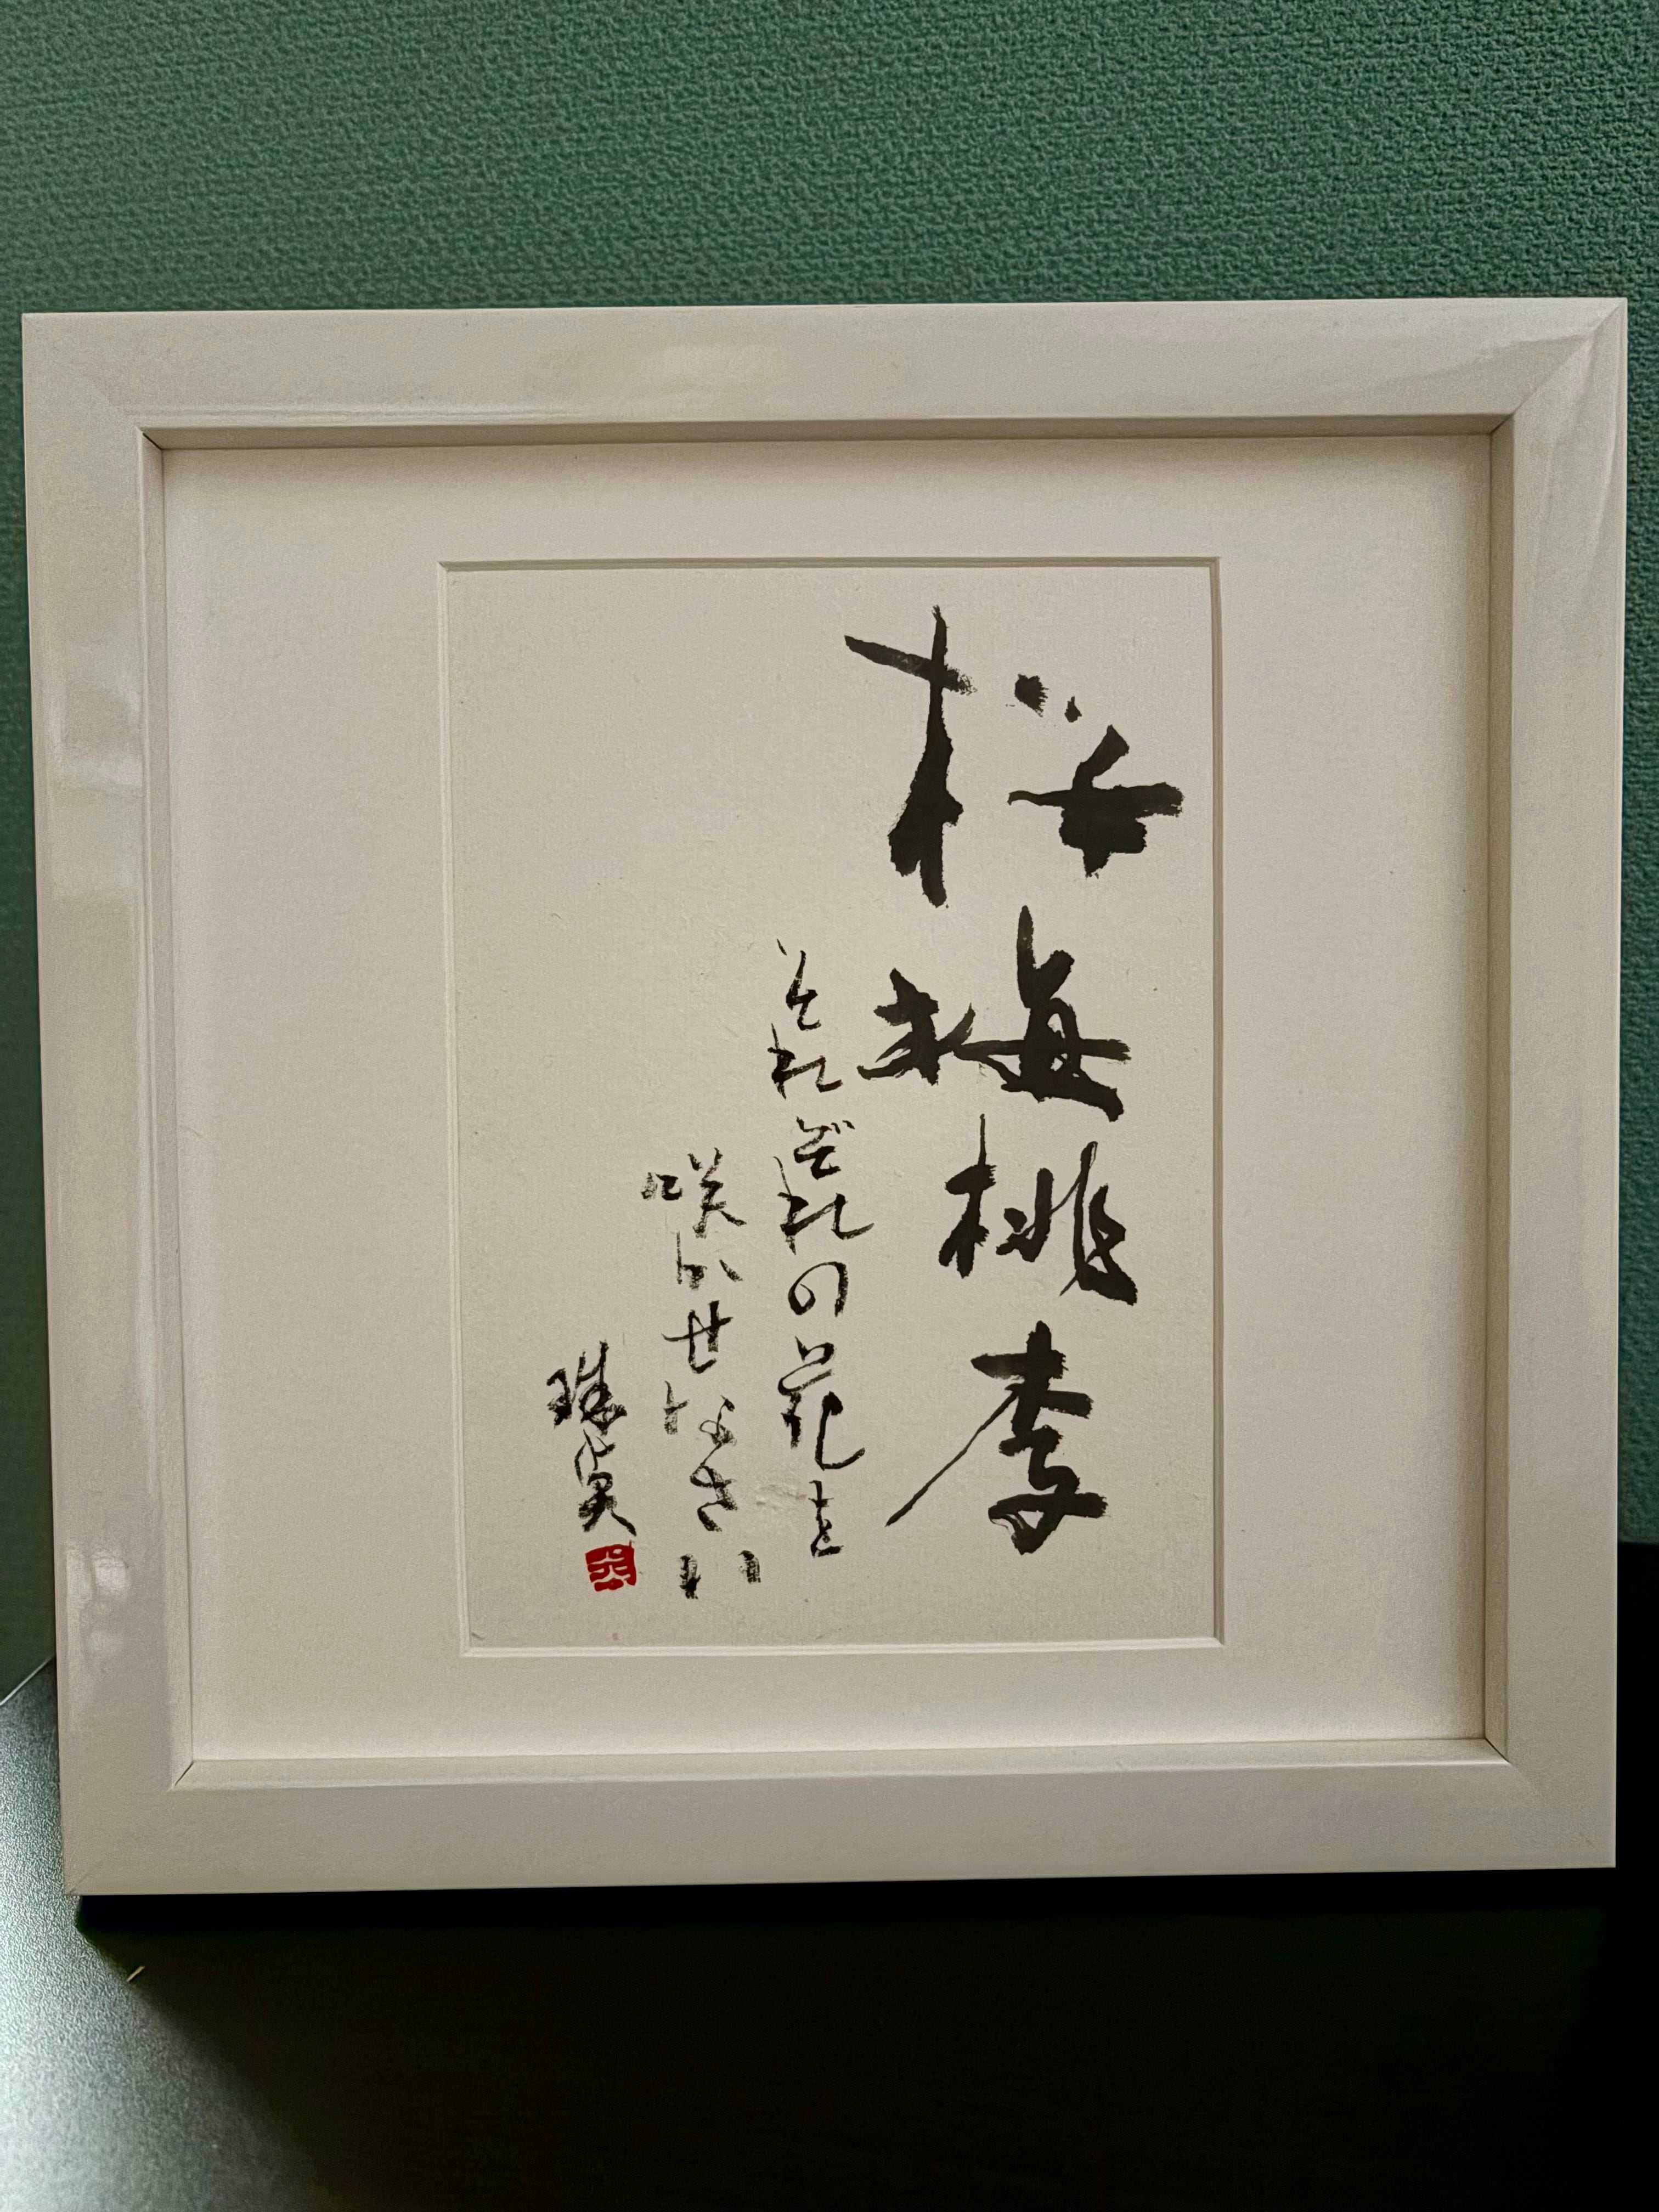 桜梅桃李
それぞれの花を
咲かせなさい
珠実